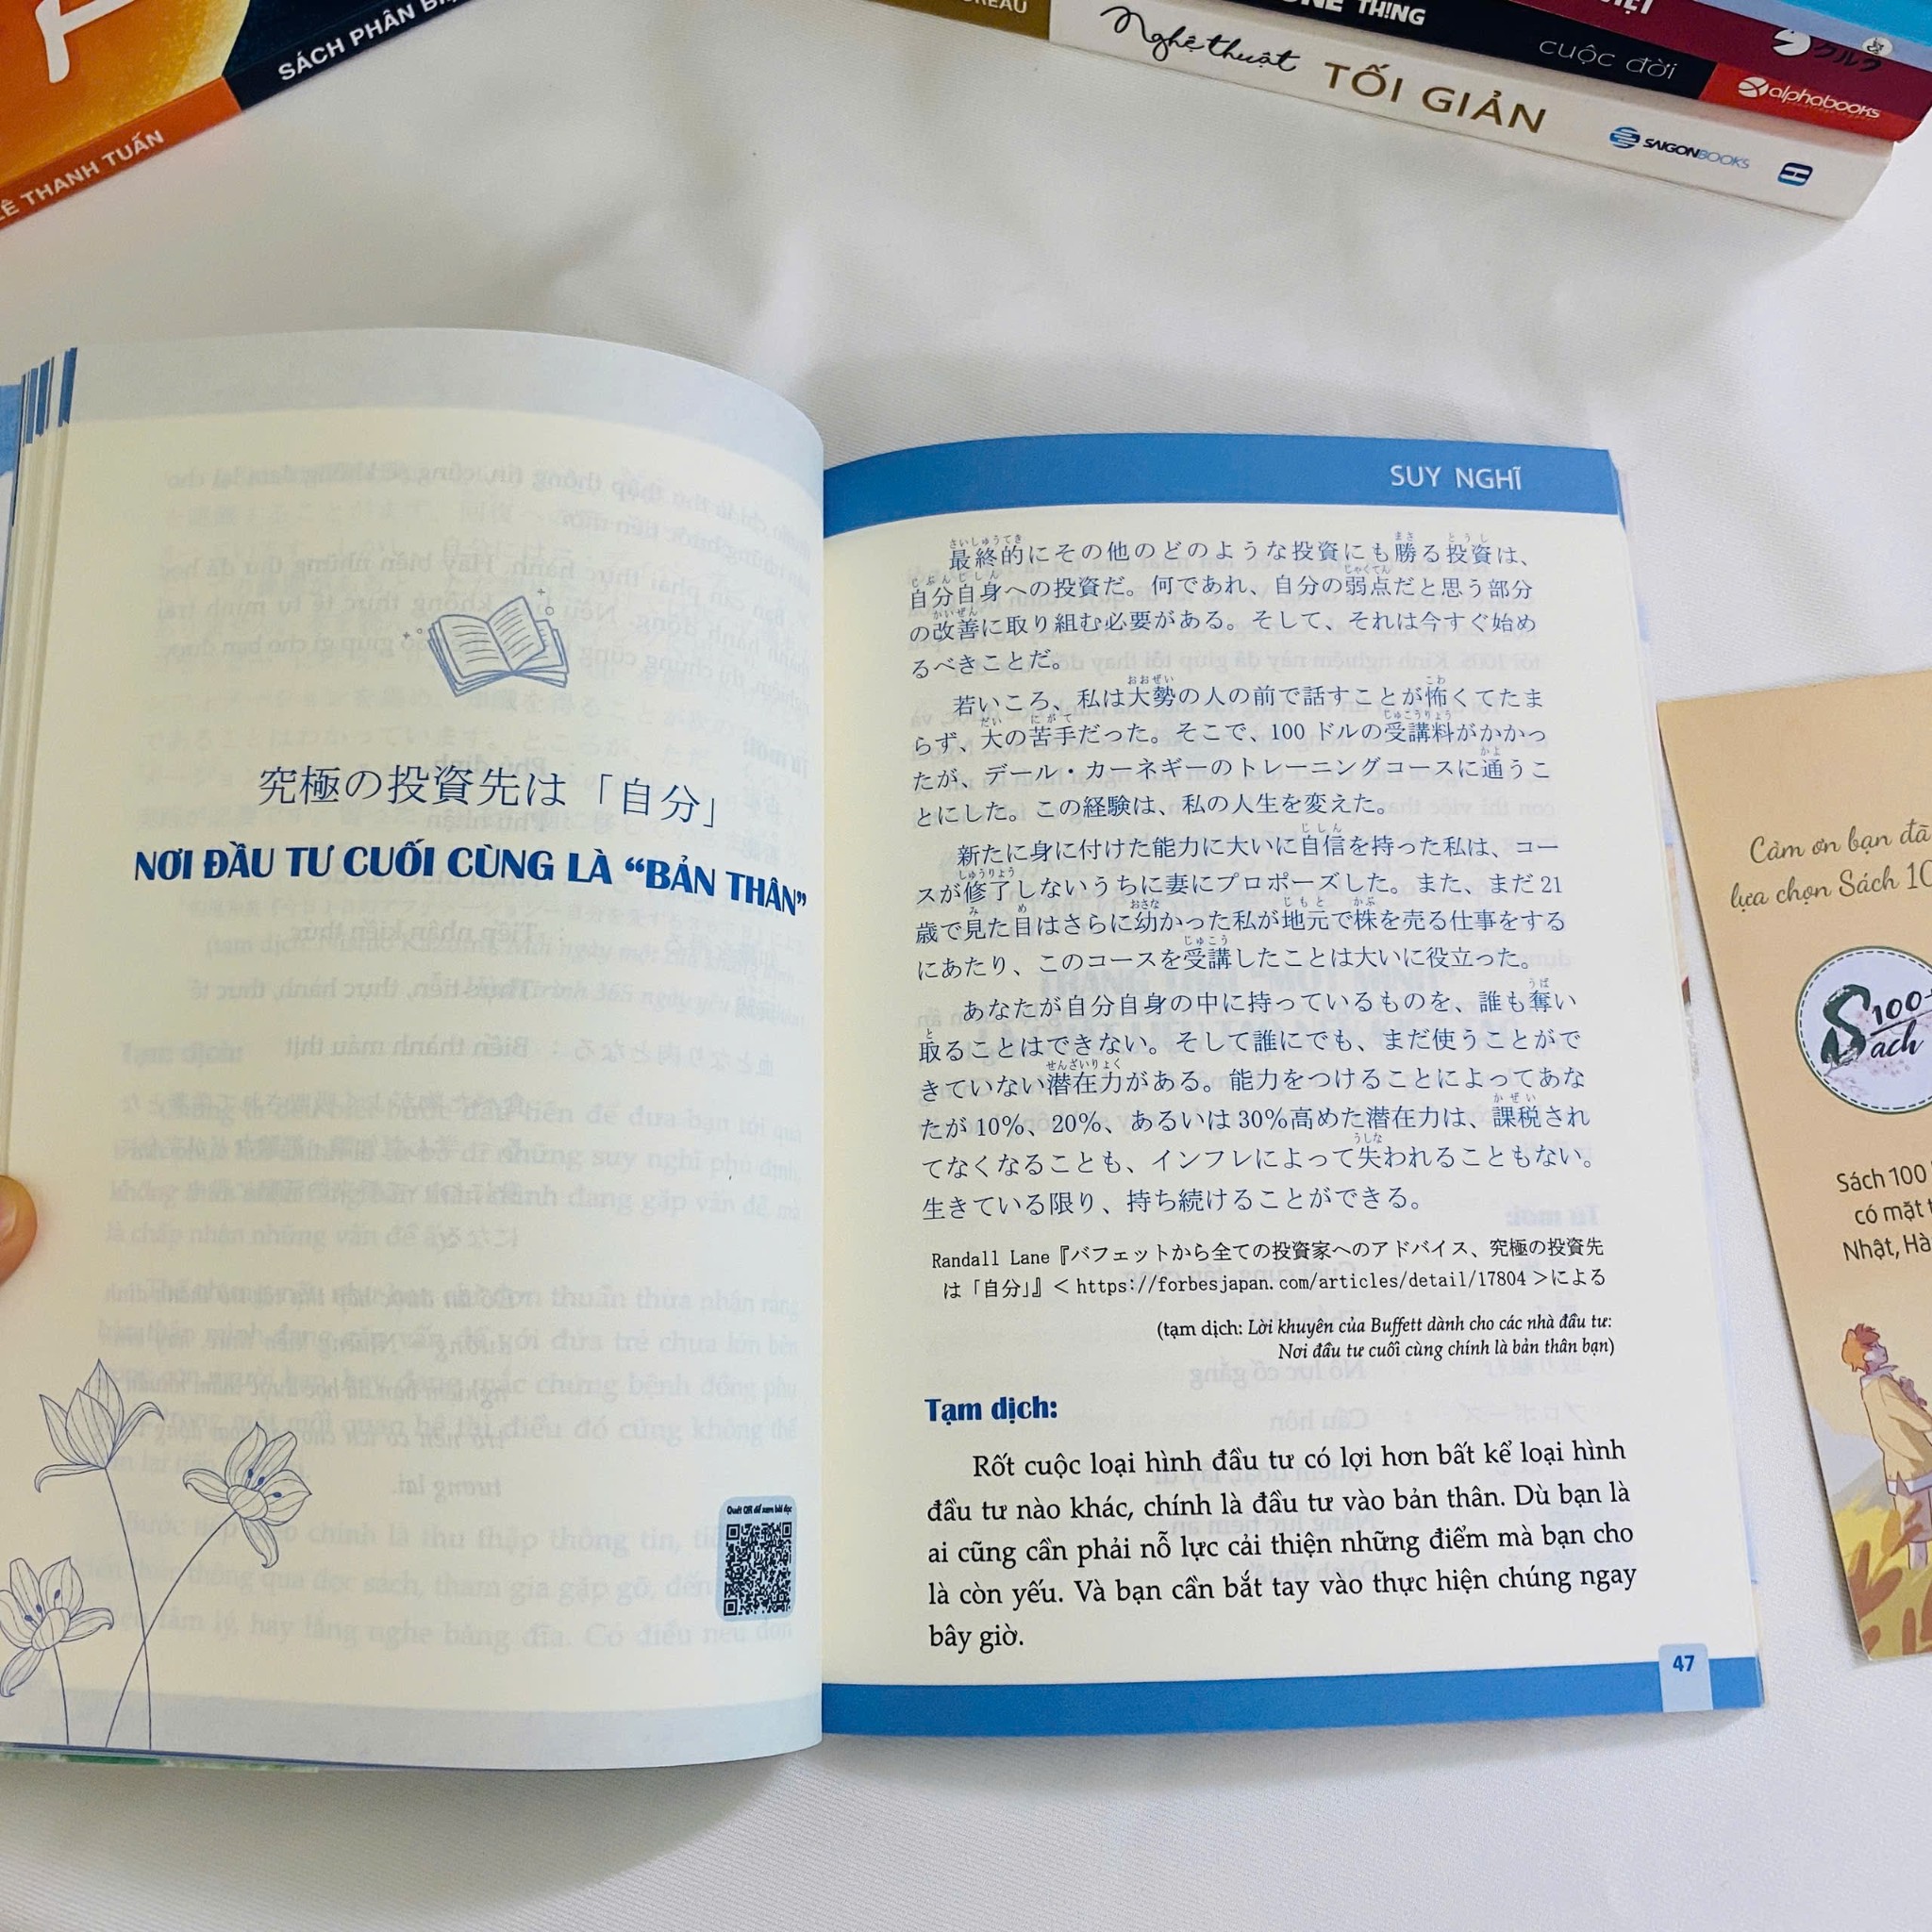 SÁCH PHÂN
LÊ THANH TUẤN
THING
cuộc đời
クルフ
alphabooks
Nghệ thuật TỐI GIẢN
SAIGONBOOKS
究極の投資先は「自分」
NƠI ĐẦU TƯ CUỐI CÙNG LÀ “BẢN THÂN”
Quét QR để xem bài đọc
SUY NGHĨ
最終的にその他のどのような投資にも勝る投資は、
自分自身への投資だ。何であれ、自分の弱点だと思う部分
の改善に取り組む必要がある。そして、それは今すぐ始め
るべきことだ。
若いころ、私は大勢の人の前で話すことが怖くてたま
らず、大の苦手だった。そこで、100 ドルの受講料がかかっ
たが、デール・カーネギーのトレーニングコースに通うこ
とにした。この経験は、私の人生を変えた。
新たに身に付けた能力に大いに自信を持った私は、コー
スが修了しないうちに妻にプロポーズした。また、まだ 21
歳で見た目はさらに幼かった私が地元で株を売る仕事をする
にあたり、このコースを受講したことは大いに役立った。
あなたが自分自身の中に持っているものを、誰も奪い
取ることはできない。そして誰にでも、まだ使うことがで
きていない潜在力がある。能力をつけることによってあな
たが 10%、20%、あるいは 30%高めた潜在力は、課税され
てなくなることも、インフレによって失われることもない。
生きている限り、持ち続けることができる。
Randall Lane『バフェットから全ての投資家へのアドバイス、究極の投資先
は「自分」』< https://forbesjapan.com/articles/detail/17804 >による
(tạm dịch: Lời khuyên của Buffett dành cho các nhà đầu tư:
Nơi đầu tư cuối cùng chính là bản thân bạn)
Tạm dịch:
Rốt cuộc loại hình đầu tư có lợi hơn bất kể loại hình
đầu tư nào khác, chính là đầu tư vào bản thân. Dù bạn là
ai cũng cần phải nỗ lực cải thiện những điểm mà bạn cho
là còn yếu. Và bạn cần bắt tay vào thực hiện chúng ngay
bây giờ.
47
Cảm ơn bạn đã
lựa chọn Sách 10
Sách 100
Sách 100
có mặt
Nhật, Hà